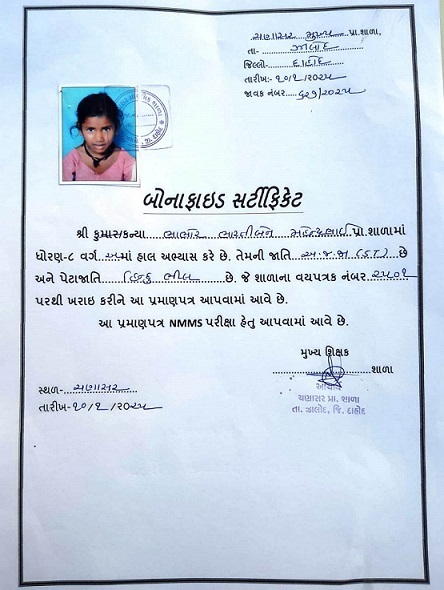 ચણાસર મુખ્ય પ્રા.શાળા,
તા- ઝાલોદ
જિલ્લો- દાહોદ
તારીખ:- ૧૦/૧/૨૦૨૫
જાવક નંબર..... ૬૨૭/૨૦૨૫
બોનાફાઇડ સર્ટીફિકેટ
શ્રી કુમાર/કન્યા ભાભોર ભારતીબેન મહેન્દ્રભાઇ પ્રા.શાળામાં
ધોરણ-૮ વર્ગ અ માં હાલ અભ્યાસ કરે છે. તેમની જાતિ અ.જ.જા (ST) છે
અને પેટાજાતિ હિન્દુ ભીલ છે. જે શાળાના વયપત્રક નંબર ૨૫૦૧
પરથી ખરાઇ કરીને આ પ્રમાણપત્ર આપવામાં આવે છે.
આ પ્રમાણપત્ર NMMS પરીક્ષા હેતુ આપવામાં આવે છે.
મુખ્ય શિક્ષક
શાળા
આચાર્ય
ચણાસર પ્રા. શાળા
તા. ઝાલોદ, જિ. દાહોદ
સ્થળ- ચણાસર
તારીખ- ૧૦/૧/૨૦૨૫